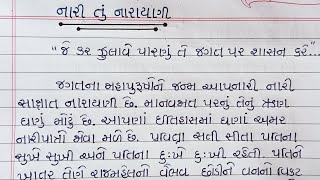 નારી તું નારાયણી
"જે કર ઝુલાવે પારણું તે જગત પર શાસન કરે"...
જગતના મહાપુરુષોને જન્મ આપનારી નારી
સાક્ષાત નારાયણી છે. માનવમત પરનું તેનું ઋણ
ઘણું મોટું છે. આપણા ઈતિહાસમાં ઘણાં અમર
નારીપાત્રો જોવા મળે છે. પવિત્ર સતી સીતા પતિના
સુખે સુખી અને પતિના દુઃખે દુઃખી રહેતી. પતિને
ખાતર તેણે રાજમહેલનો વૈભવ છોડીને વનની વિકટ